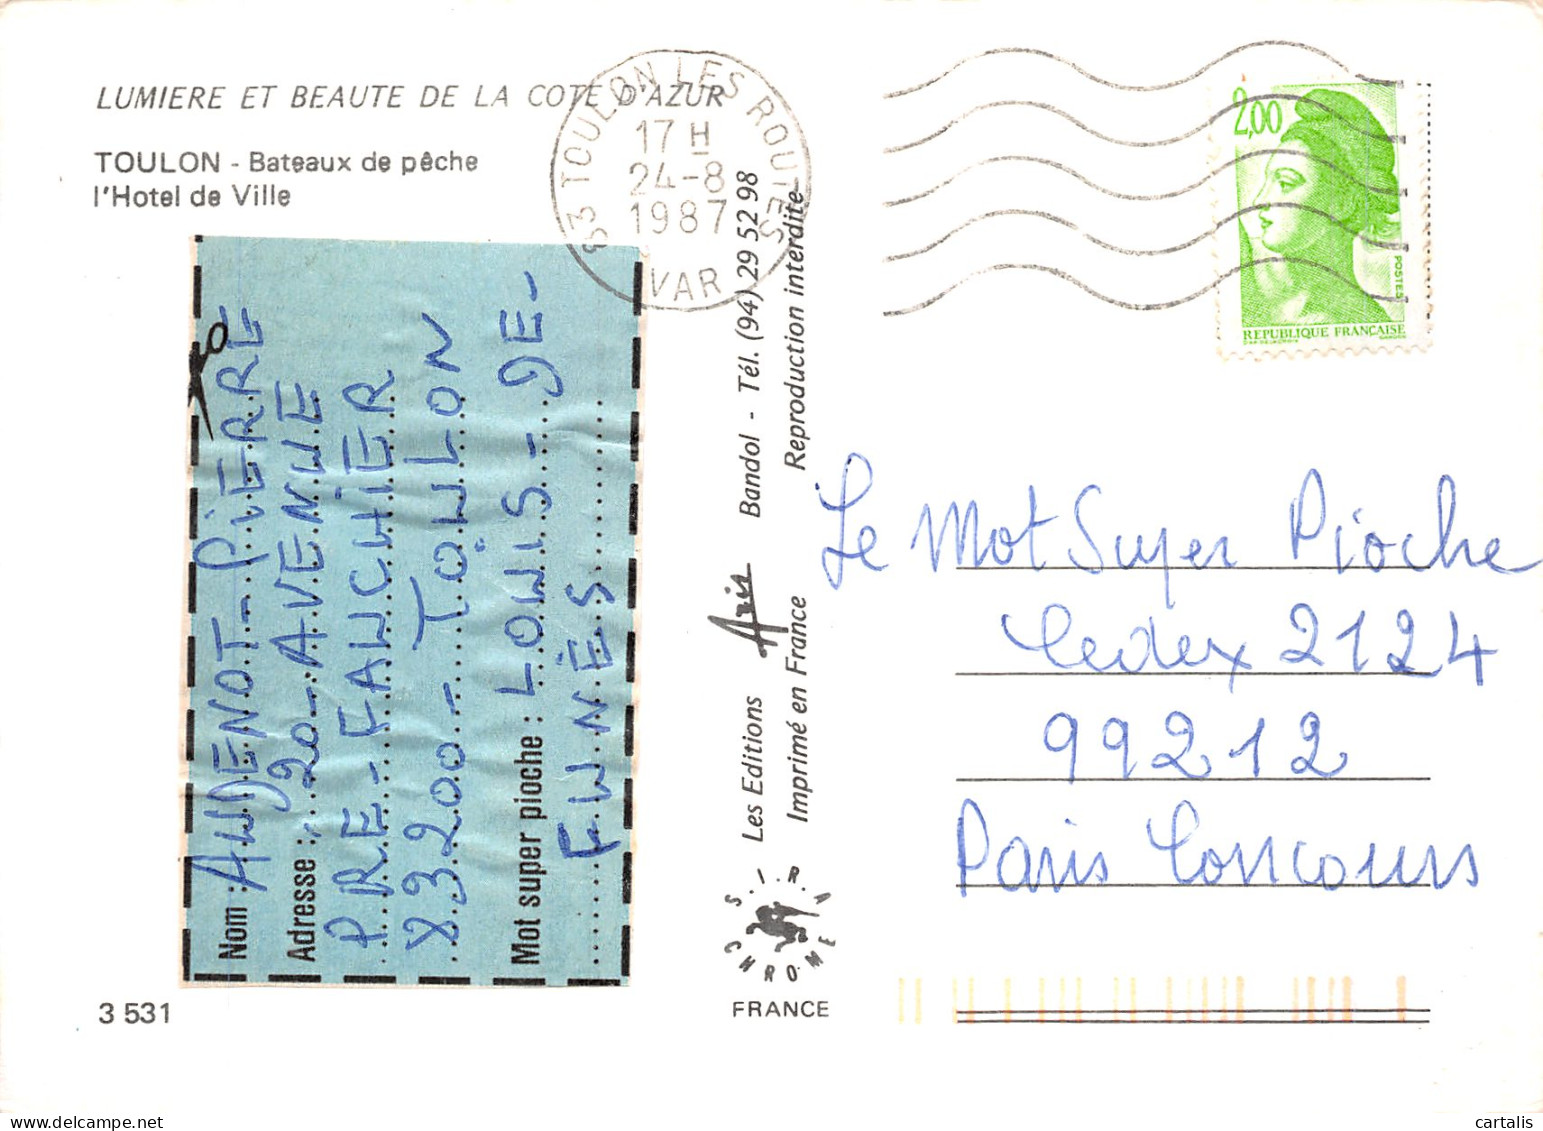 LUMIERE ET BEAUTE DE LA COTE D'AZUR
TOULON - Bateaux de pêche
l'Hotel de Ville
83 TOULON LES ROUTES
17 H
24-8
1987
VAR
2,00
POSTES
REPUBLIQUE FRANÇAISE
Nom : AUDENOT - PIERRE
Adresse : 20 - AVENUE
PRE - FAUCHIER
83200 - TOULON
Mot super pioche : LOUIS - DE -
FUNÈS
Les Editions Aris Bandol - Tél. (94) 29 52 98
Imprimé en France Reproduction interdite
S.I.R.A
CHROME
FRANCE
Le Mot Super Pioche
Cedex 2124
99212
Paris Concours
3 531
cartalis